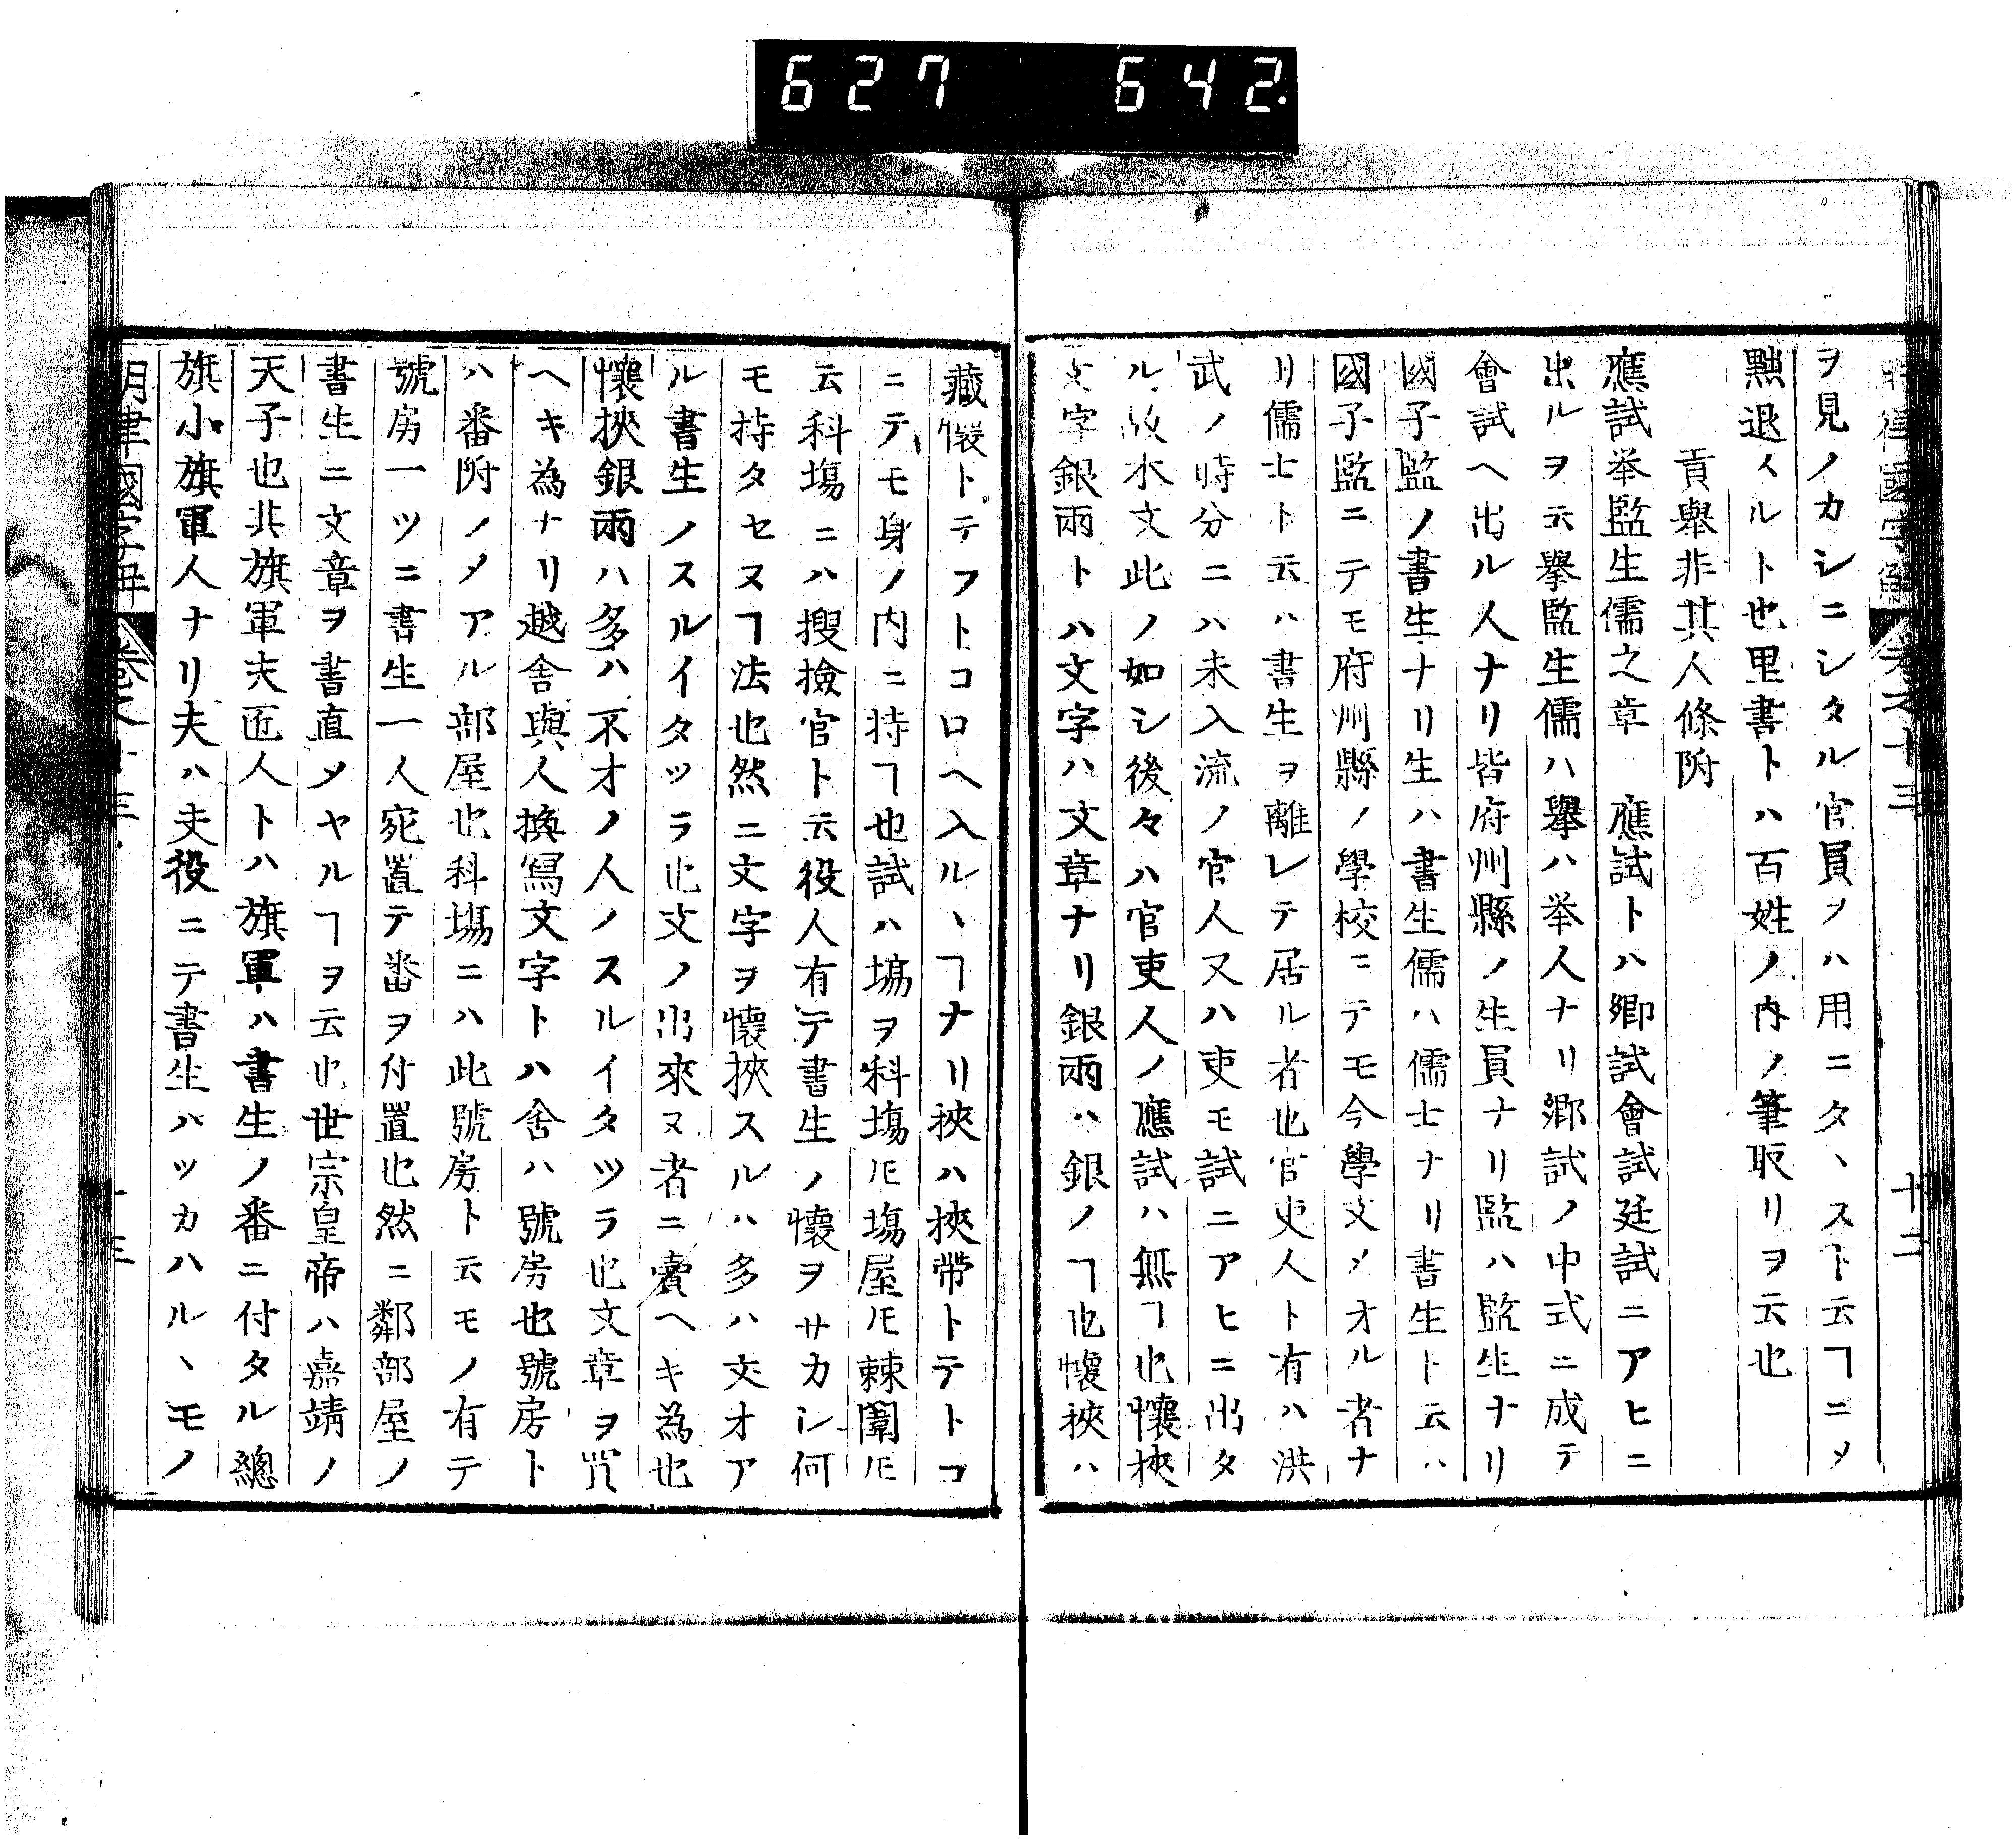 627 642
律國字解 卷之十三 十二
ヲ見ノカシニシタル官員ノハ用ニタヽスト云ヿニメ
黜退スルト也里書トハ百姓ノ内ノ筆取リヲ云也
貢舉非其人條附
應試举監生儒之章 應試トハ郷試會試廷試ニアヒニ
出ルヲ云擧監生儒ハ擧ハ举人ナリ郷試ノ中式ニ成テ
會試ヘ出ル人ナリ皆府州縣ノ生員ナリ監ハ監生ナリ
國子監ノ書生ナリ生ハ書生儒ハ儒士ナリ書生ト云ハ
國子監ニテモ府州縣ノ學校ニテモ今學文メオル者ナ
リ儒士ト云ハ書生ヲ離レテ居ル者也官吏人ト有ハ洪
武ノ時分ニハ未入流ノ官人又ハ吏モ試ニアヒニ出タ
ル故本文此ノ如シ後々ハ官吏人ノ應試ハ無ヿ也懷挾
文字銀兩トハ文字ハ文章ナリ銀兩ハ銀ノヿ也懷挾ハ
藏懷トテフトコロヘ入ルヽヿナリ挾ハ挾帶トテトコ
ニテモ身ノ内ニ持ヿ也試ハ塲ヲ科塲𪜈塲屋𪜈棘闈𪜈
云科塲ニハ搜撿官ト云役人有テ書生ノ懷ヲサカシ何
モ持タセヌヿ法也然ニ文字ヲ懷挾スルハ多ハ文オア
ル書生ノスルイタツラ也文ノ出來ヌ者ニ賣ヘキ為也
懷挾銀兩ハ多ハ不才ノ人ノスルイタツラ也文章ヲ買
ヘキ為ナリ越舍與人換寫文字トハ舍ハ號房也號房ト
ハ番附ノメアル部屋也科塲ニハ此號房ト云モノ有テ
號房一ツニ書生一人宛置テ番ヲ付置也然ニ鄰部屋ノ
書生ニ文章ヲ書直メヤルヿヲ云也世宗皇帝ハ嘉靖ノ
天子也其旗軍夫匠人トハ旗軍ハ書生ノ番ニ付タル總
旗小旗軍人ナリ夫ハ夫役ニテ書生ハツカハルヽモノ
明律國字解 卷之十三 十三